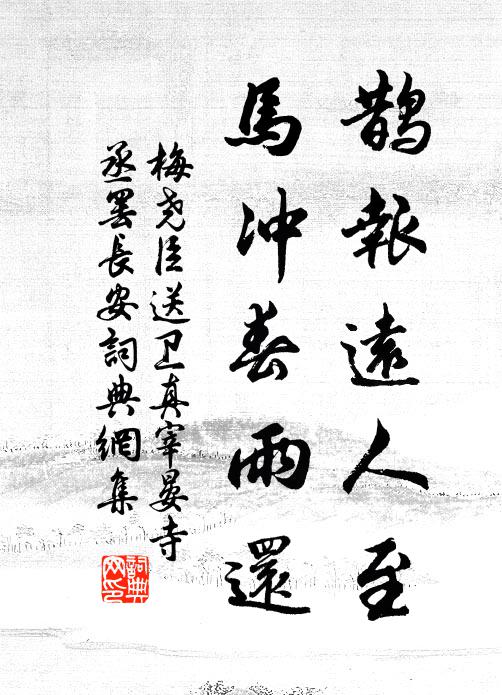 鵲報遠人至
馬冲春雨還
梅尧臣送卫真宰晏寺
丞罢長安詞典網集
詞典
网印